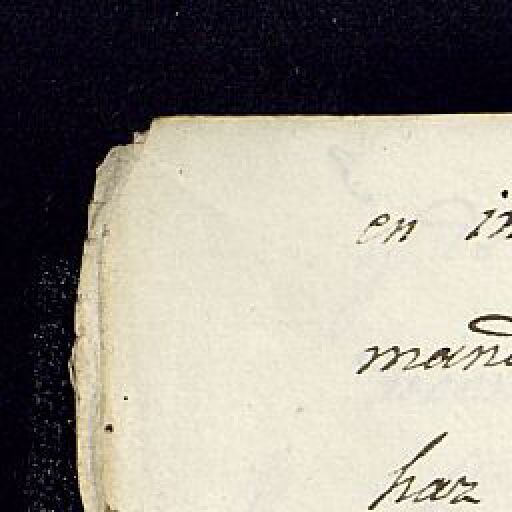 en in
mand
har